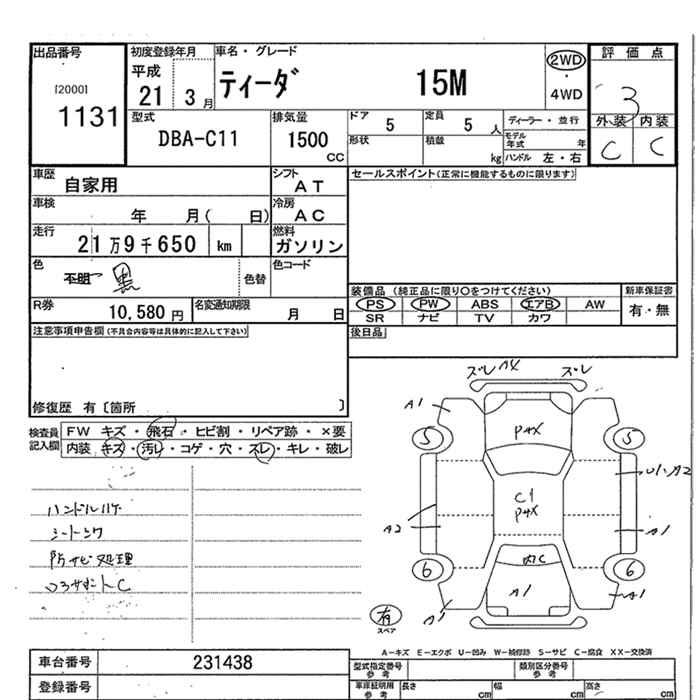 出品番号 初度登録年月 車名・グレード 評価点
[2000] 平成 ティーダ 15M 2WD
1131 21 3月 ・ 4WD 3
型式 排気量 ドア 5 定員 5人 ディーラー・並行 外装 内装
DBA-C11 1500 cc 形状 積載 kg モデル年式 年 C C
ハンドル 左・右
車歴 自家用 シフト AT セールスポイント(正常に機能するものに限ります)
車検 年 月( 日) 冷房 AC
走行 21万9千650 km 燃料 ガソリン
色 不明 黒 色替 色コード
装備品 (純正品に限り○をつけてください) 新車保証書
PS PW ABS エアB AW 有・無
R券 10,580円 名変通知期限 月 日 SR ナビ TV カワ
注意事項申告欄(不具合内容等は具体的に記入して下さい) 後日品
修復歴 有〔箇所 〕
検査員記入欄 FW キズ・飛石・ヒビ割・リペア跡・×要
内装 キズ・汚レ・コゲ・穴・スレ・キレ・破レ
ズレ A4 ズレ
A1
5 5
PキX
U1・A2
C1
PキX
A2 A1
ハンドルハゲ
シートシワ
防サビ処理
6 6
内C
A1
A1 A1
有
スペア
A-キズ E-エクボ U-凹み W-補修跡 S-サビ C-腐食 XX-交換済
車台番号 231438 型式指定番号 参考 類別区分番号 参考
登録番号 車庫証明用 参考 長さ cm 幅 cm 高さ cm